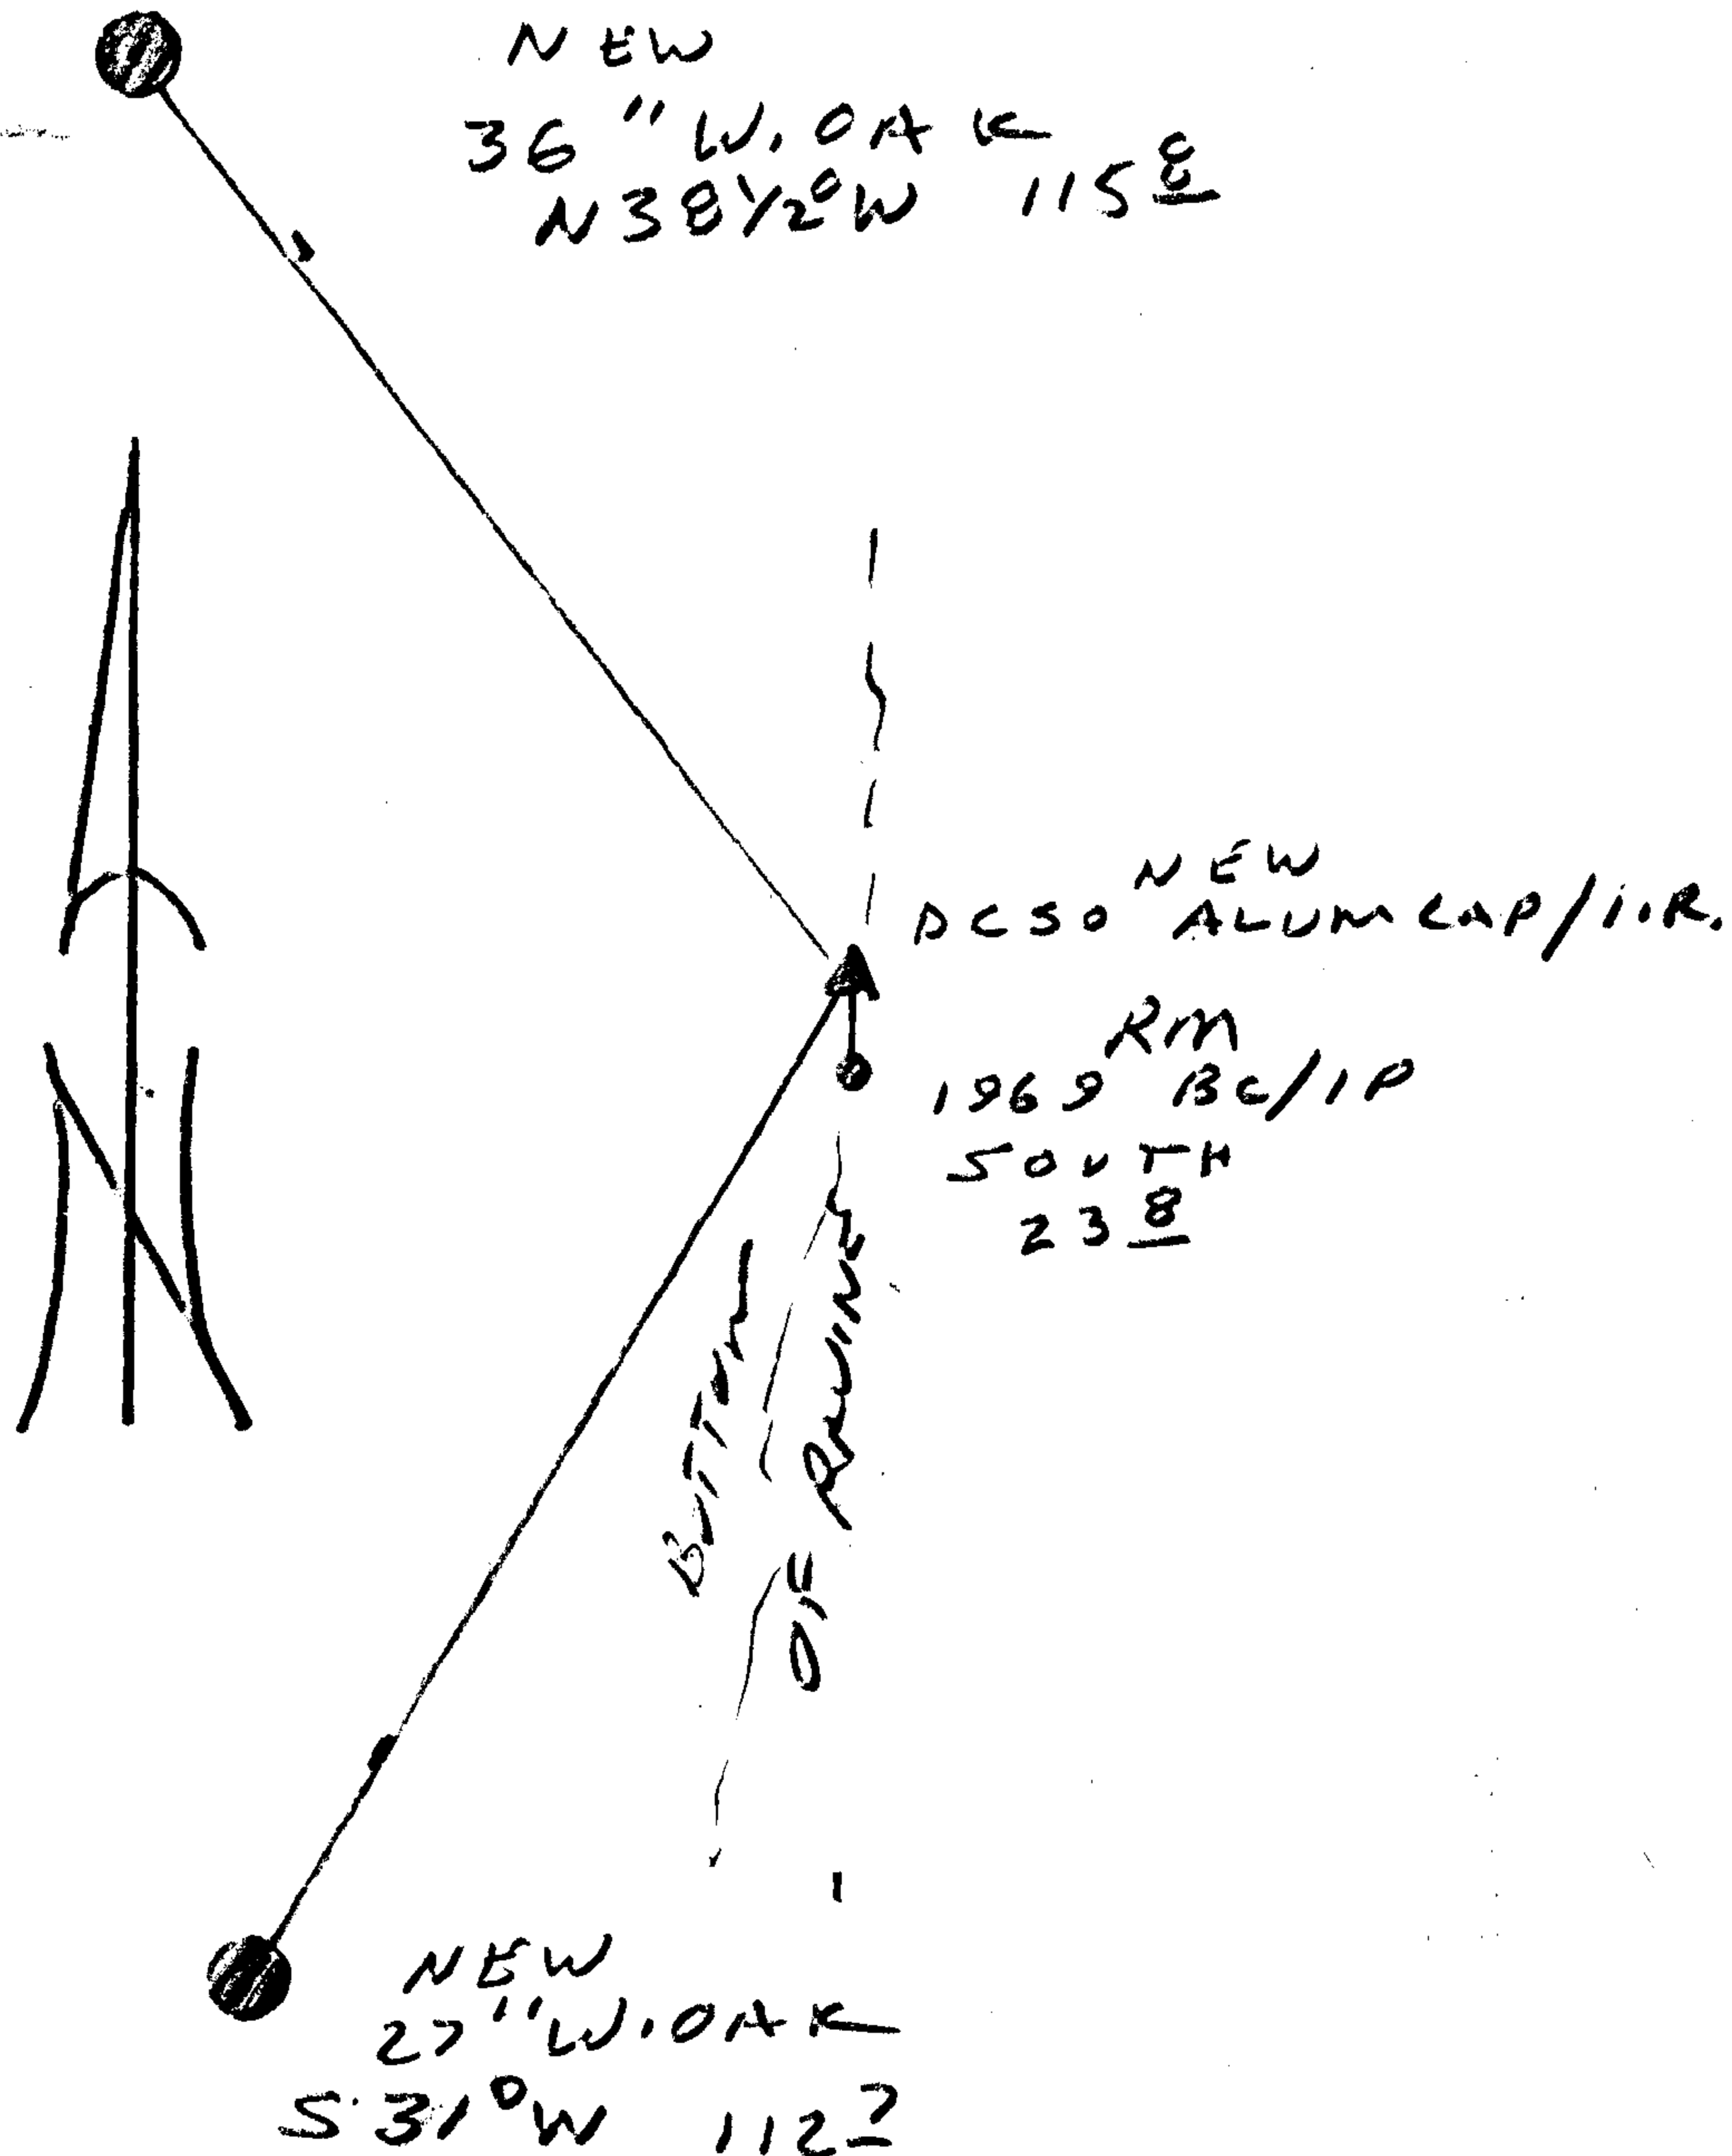 NEW
36" W. OAK
N38½°W 115 8
NEW
DCSO ALUM CAP/I.R.
RM
1969 BC/IP
SOUTH
23 8
BOTTOM
OF RAVINE
N
NEW
27" W. OAK
S 31°W 112 2